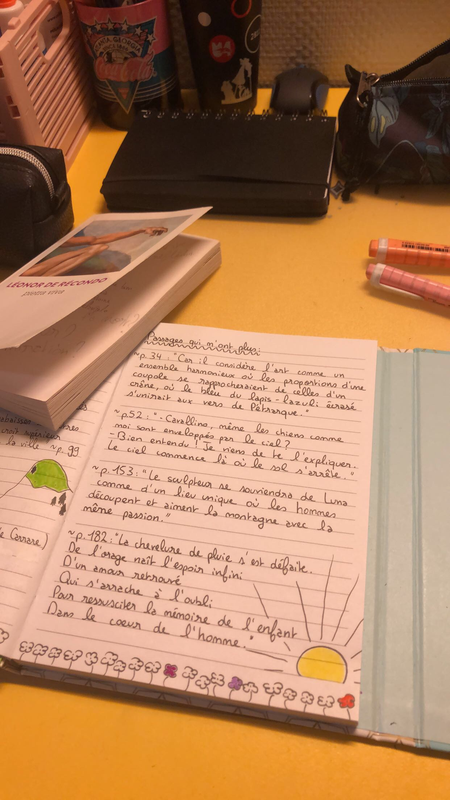 Coca-Cola
LÉONOR DE RÉCONDO
pietra viva
Passages qui m'ont plus:
~p.34: "Car il considère l'art comme un
ensemble harmonieux où les proportions d'une
coupole se rapprocheraient de celles d'un
crâne, où le bleu du lapis-lazuli écrasé
s'unirait aux vers de Pétrarque."
~p.52: "-Cavallino, même les chiens comme
moi sont enveloppés par le ciel?
-Bien entendu! Je viens de te l'expliquer.
Le ciel commence là où le sol s'arrête."
~p.153: "Le sculpteur se souviendra de Luna
comme d'un lieu unique où les hommes
découpent et aiment la montagne avec la
même passion."
~p.182: "La chevelure de pluie s'est défaite.
De l'orage naît l'espoir infini
D'un amour retrouvé
Qui s'arrache à l'oubli
Pour ressusciter la mémoire de l'enfant
Dans le coeur de l'homme."
la ville ~p.99
de Carrare)